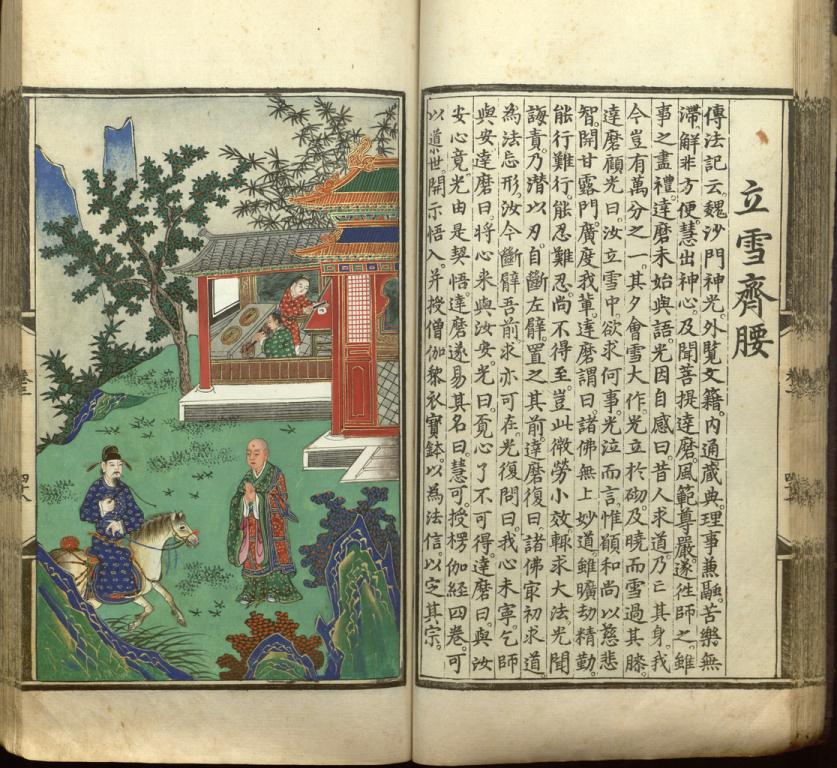 立雪齊腰
傳法記云。魏沙門神光。外覽文籍。內通藏典。理事兼融。苦樂無
滯。解非方便。慧出神心。及聞菩提達磨。風範尊嚴。遂徃師之。雖
事之盡禮。達磨未始與語。光因自感曰。昔人求道。乃亡其身。我
今豈有萬分之一。其夕會雪大作。光立於砌。及曉而雪過其膝。
達磨顧光曰。汝立雪中。欲求何事。光泣而言。惟願和尚。以慈悲
智。開甘露門。廣度我輩。達磨謂曰。諸佛無上妙道。雖曠劫精勤。
能行難行。能忍難忍。尚不得至。豈此微勞小效。輒求大法。光聞
誨責。乃潛以刃。自斷左臂。置之其前。達磨復曰。諸佛㝡初求道。
為法忘形。汝今斷臂吾前。求亦可在。光復問曰。我心未寧。乞師
與安。達磨曰。將心來與汝安。光曰。覓心了不可得。達磨曰。與汝
安心竟。光由是契悟。達磨遂易其名曰。慧可。授楞伽經四卷。可
以道世。開示悟入。并授僧伽黎衣寶鉢。以為法信。以定其宗。